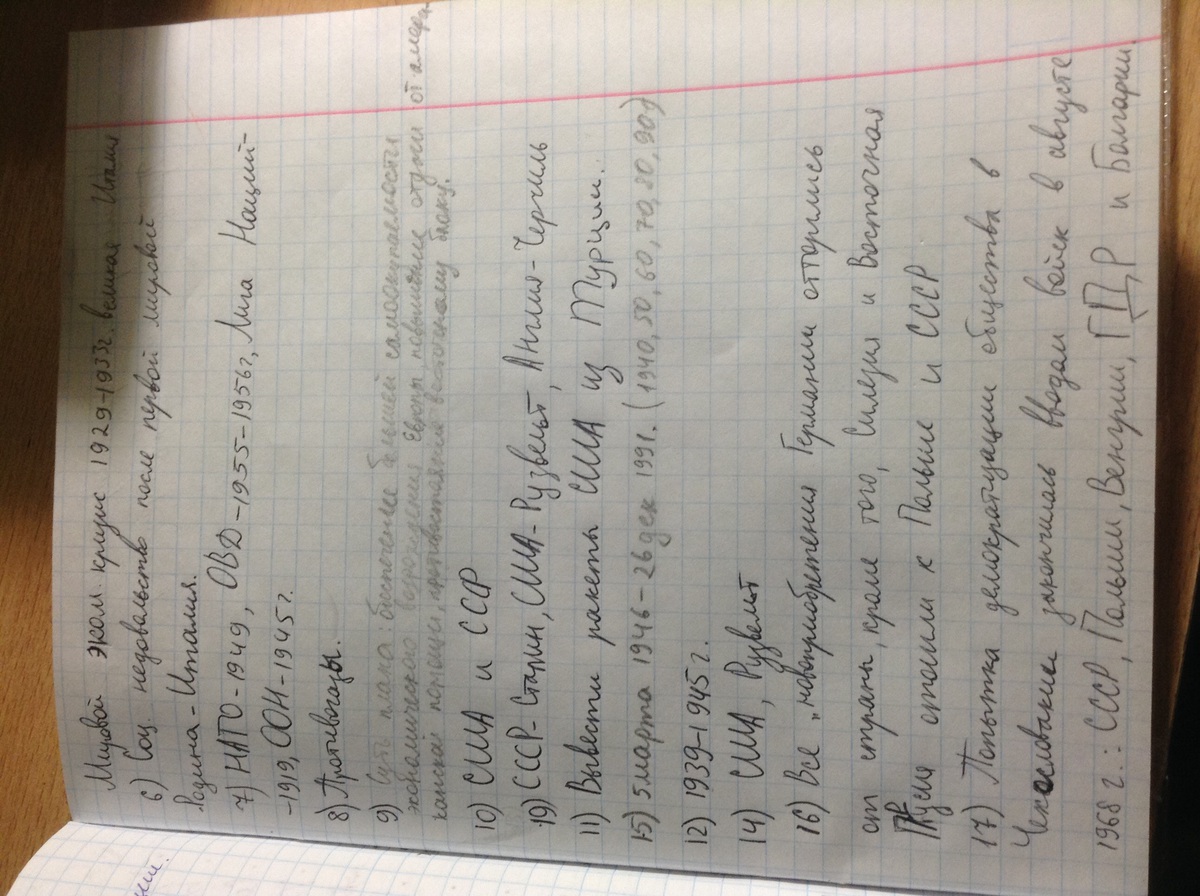 Мировой эконом. кризис 1929-1933г. великая Италия
6) Соц. недовольство после первой мировой
Родина - Италия.
7) НАТО - 1949, ОВД - 1955-1956г, Лига Наций -
- 1919, ООН - 1945г.
8) Противогазы.
9) Суть плана: обеспечение большей самоокупаемости
экономического возрождения Европы, появившиеся отдачи от амери-
канской помощи, противостояние восточному блоку.
10) США и СССР
19) СССР - Сталин, США - Рузвельт, Англия - Черчиль
11) Вывести ракеты США из Турции.
15) 5 марта 1946 - 26 дек 1991. (1940, 50, 60, 70, 80, 90)
12) 1939-1945г.
14) США, Рузвелт
16) Все „новоприобретения Германии отторглись
от страны, кроме того, Силезия и Восточная
Пруссия отошли к Польше и СССР
17) Попытка демократизации общества в
Чехословакии закончилась вводом войск в августе
1968 г.: СССР, Польши, Венгрии, ГДР и Болгарии.
ии.